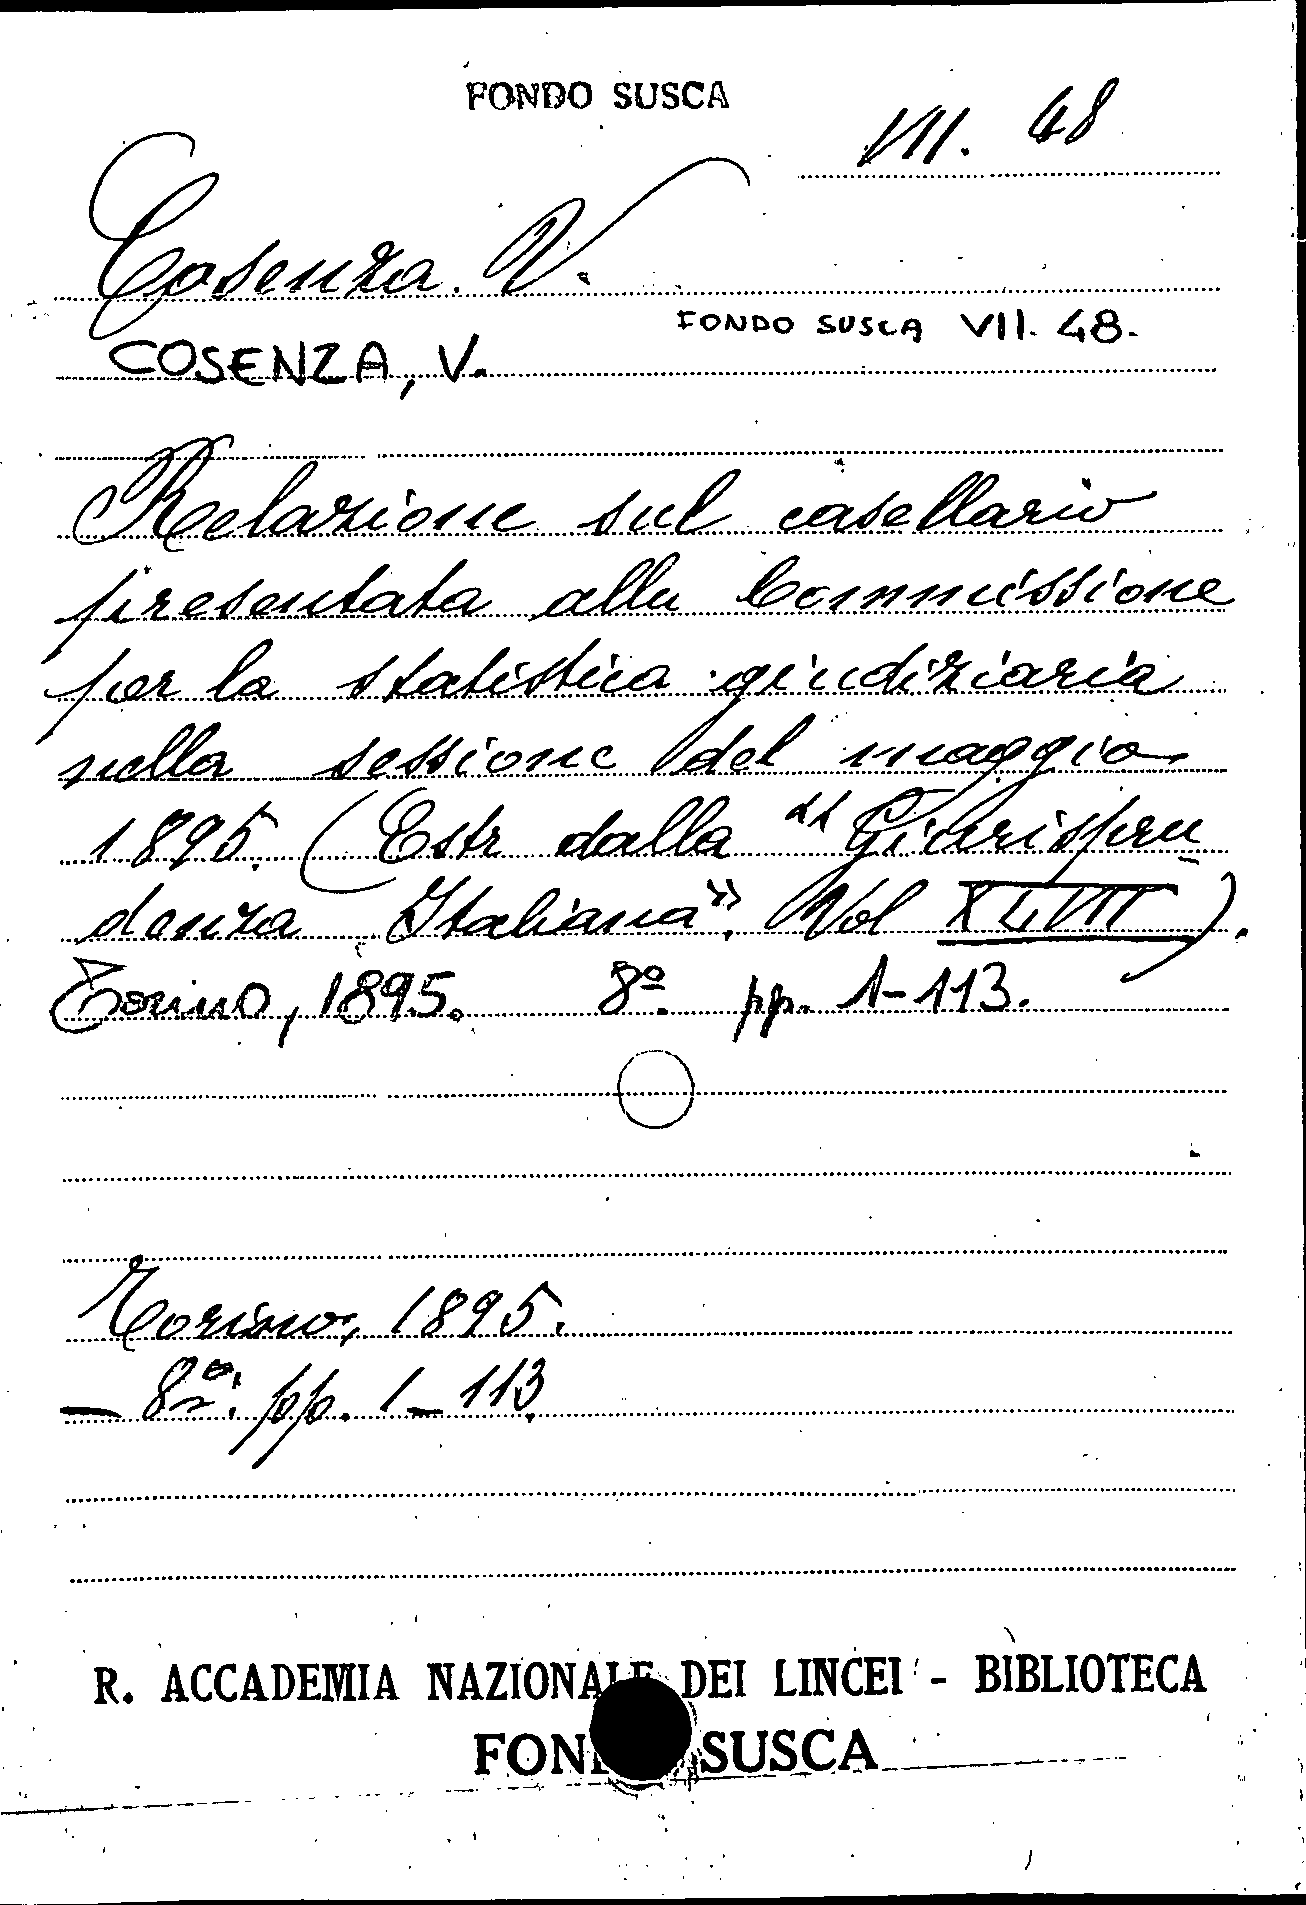 FONDO SUSCA
VII. 48
Cosenza. V.
FONDO SUSCA VII. 48.
COSENZA, V.
Relazione sul casellario
presentata alla Commissione
per la statistica giudiziaria
nella sessione del maggio
1895. (Estr dalla "Giurispru
denza Italiana". Vol XLVII).
Torino, 1895. 8º. pp. 1-113.
Torino, 1895.
— 8º: pp. 1-113
R. ACCADEMIA NAZIONALE DEI LINCEI - BIBLIOTECA
FONDO SUSCA